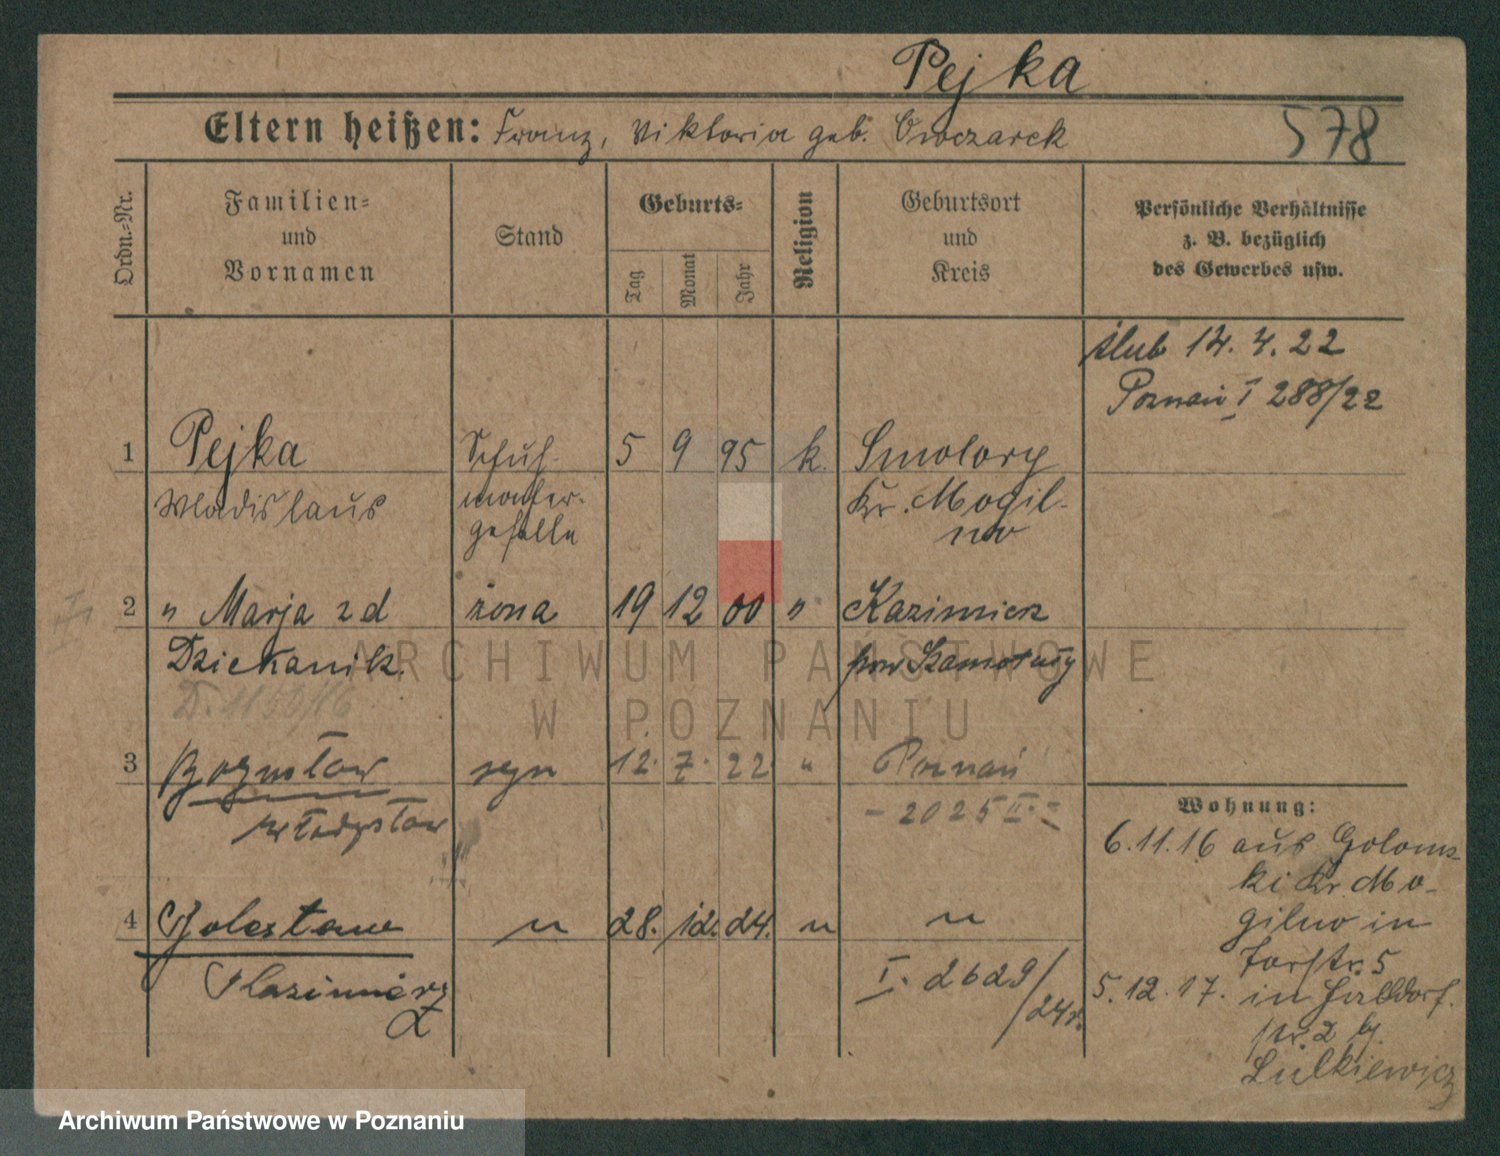 Pejka
Eltern heißen: Franz, Viktoria geb. Owczarek
578
Ordn.-Nr.
Familien-
und
Vornamen
Stand
Geburts-
Tag
Monat
Jahr
Religion
Geburtsort
und
Kreis
Persönliche Verhältnisse
z. B. bezüglich
des Gewerbes usw.
ślub 14. 4. 22
Poznań I 288/22
1 Pejka Schuh- 5 9 95 k. Smolary
Wladislaus macher- Kr. Mogil-
geselle no
2 " Marja z d żona 19 12 00 " Kazimierz
Dziekanik. pow Szamotuły
D. 1150/16
3 Bogusław syn 12. 7. 22 " Poznań
Władysław - 2025 II. -
4 Bolesław " 28. 12. 24. " "
Kazimierz I. 2629/24r.
Wohnung:
6.11.16 aus Goloms-
ki Kr. Mo-
gilno in
Torstr. 5
5.12.17. in Halldorf-
str. 2 b/
Lulkiewicz
ARCHIWUM PAŃSTWOWE
W POZNANIU
Archiwum Państwowe w Poznaniu